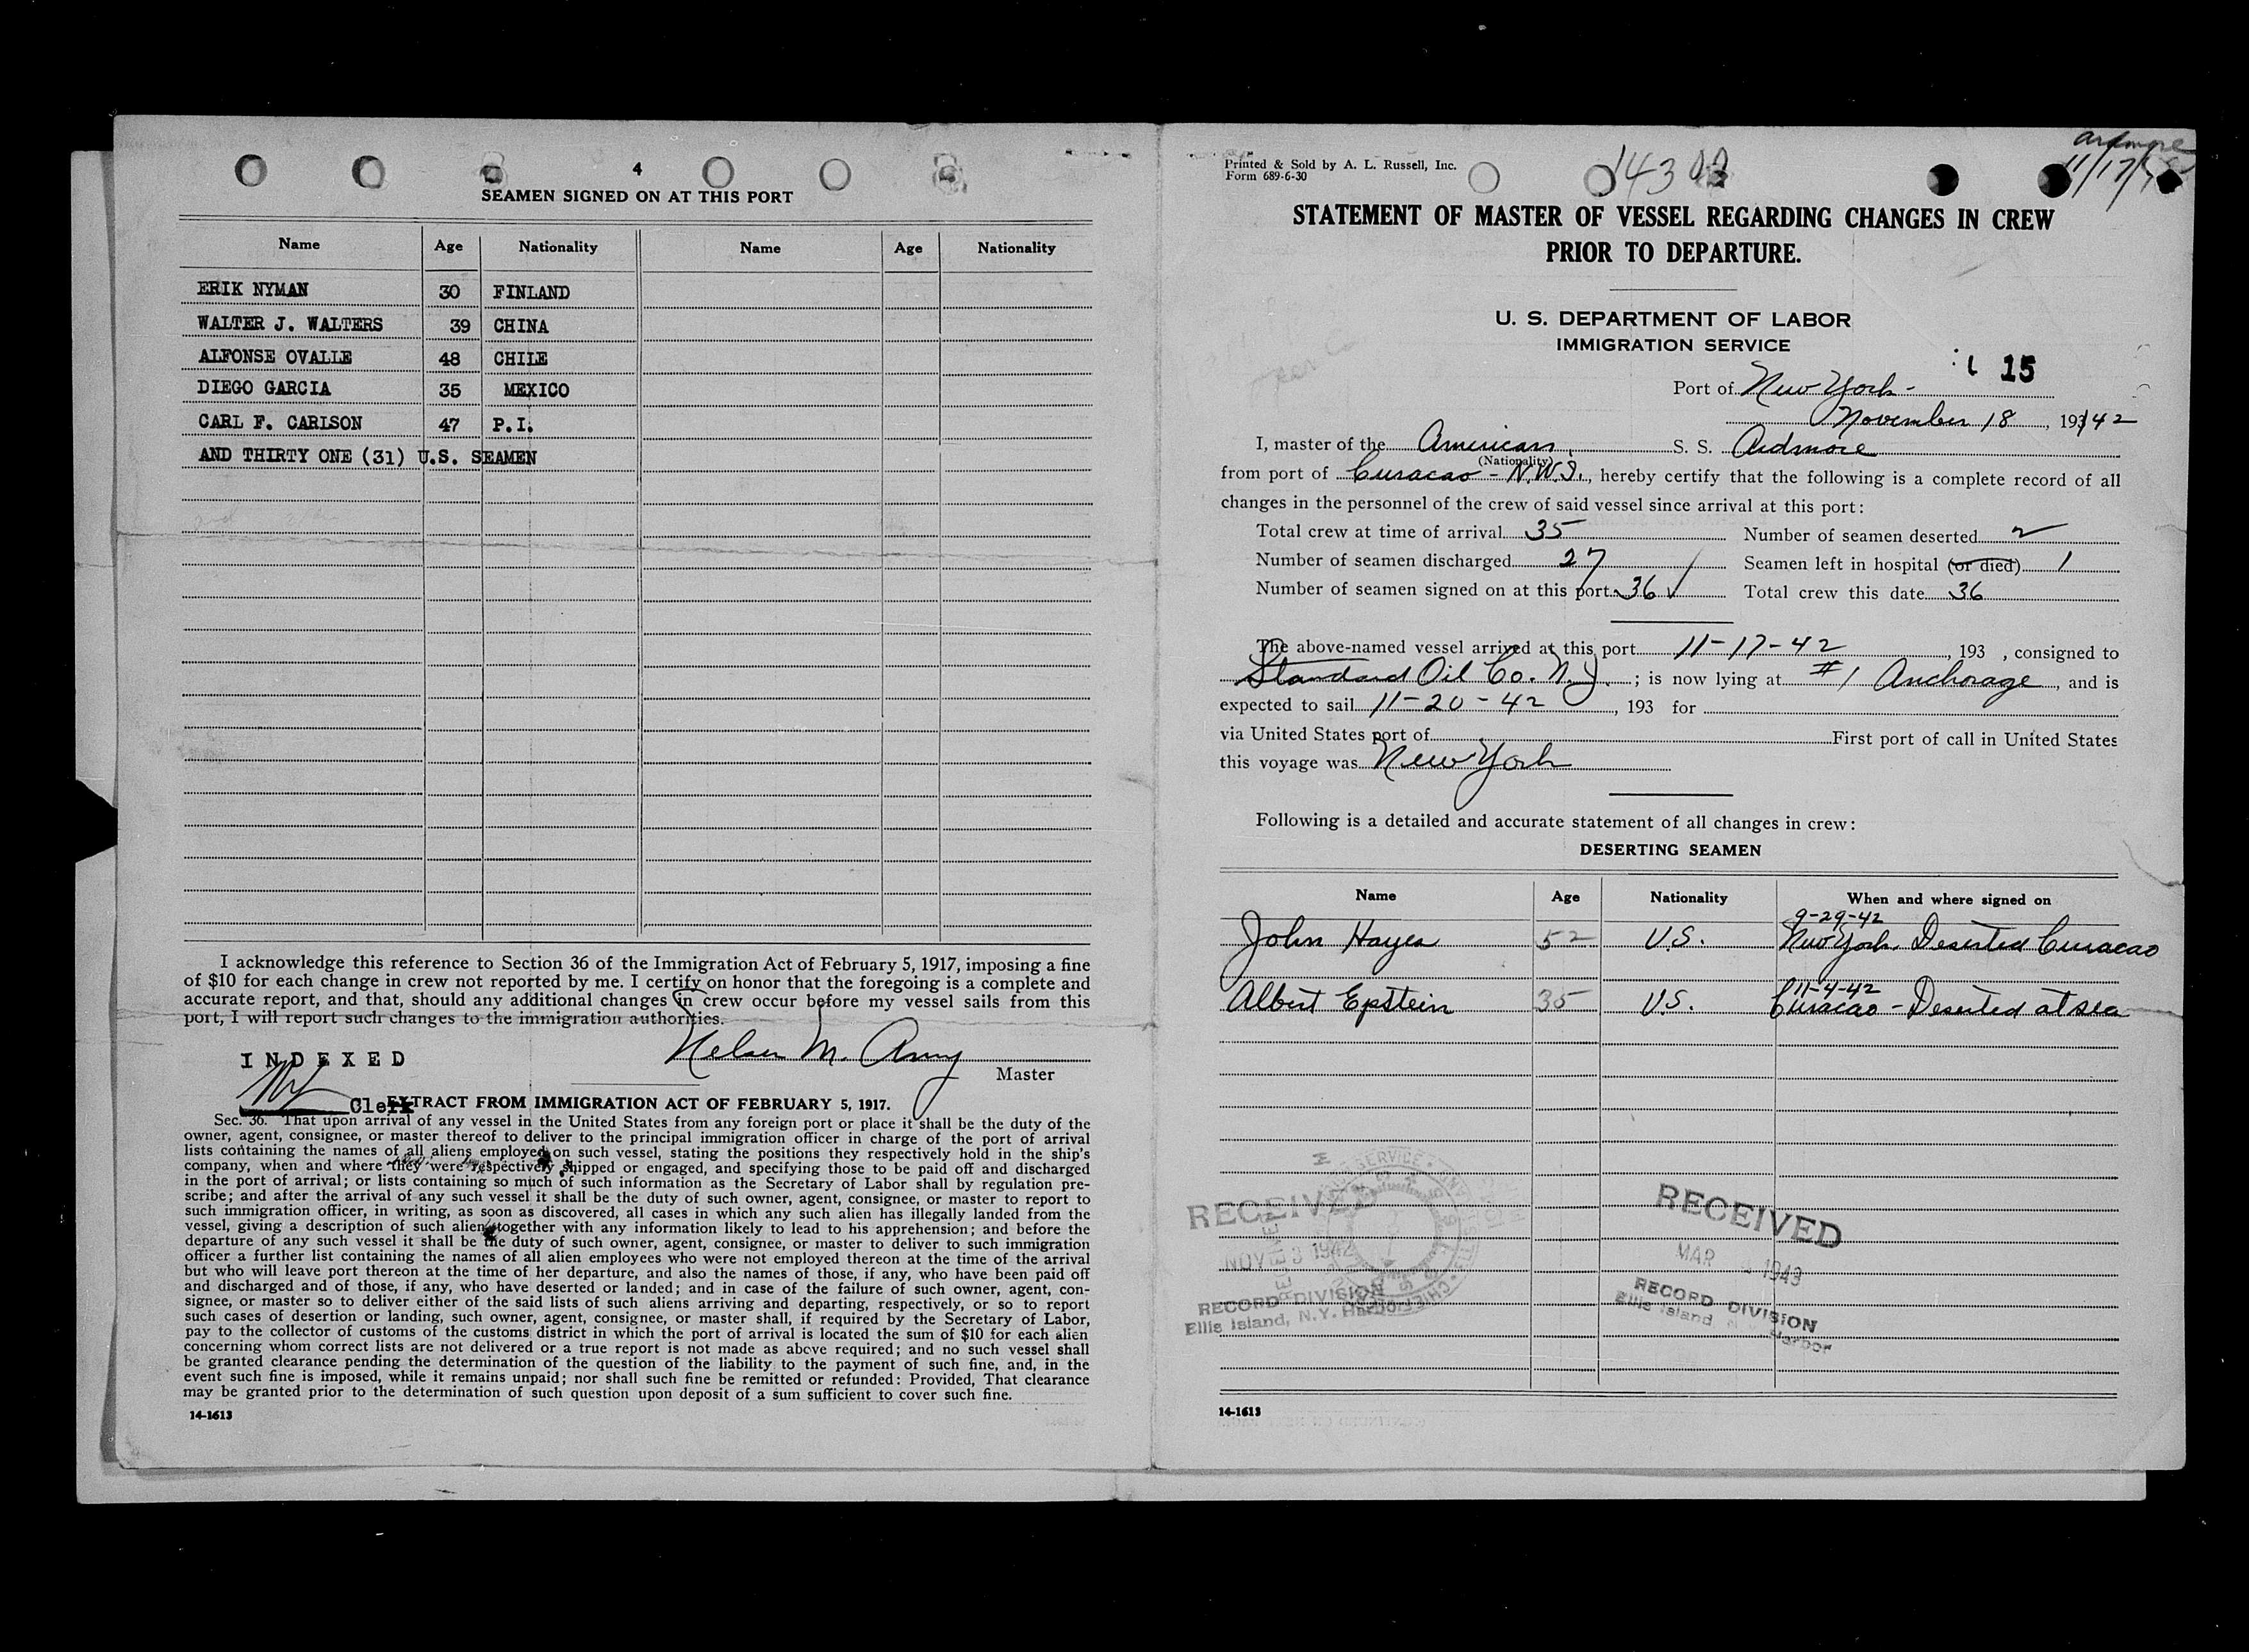 4
SEAMEN SIGNED ON AT THIS PORT
Name Age Nationality Name Age Nationality
ERIK NYMAN 30 FINLAND
WALTER J. WALTERS 39 CHINA
ALFONSE OVALLE 48 CHILE
DIEGO GARCIA 35 MEXICO
CARL F. CARLSON 47 P.I.
AND THIRTY ONE (31) U.S. SEAMEN
I acknowledge this reference to Section 36 of the Immigration Act of February 5, 1917, imposing a fine
of $10 for each change in crew not reported by me. I certify on honor that the foregoing is a complete and
accurate report, and that, should any additional changes in crew occur before my vessel sails from this
port, I will report such changes to the immigration authorities.
Nelson M. Army
Master
INDEXED
Clerk
EXTRACT FROM IMMIGRATION ACT OF FEBRUARY 5, 1917.
Sec. 36. That upon arrival of any vessel in the United States from any foreign port or place it shall be the duty of the
owner, agent, consignee, or master thereof to deliver to the principal immigration officer in charge of the port of arrival
lists containing the names of all aliens employed on such vessel, stating the positions they respectively hold in the ship's
company, when and where they were respectively shipped or engaged, and specifying those to be paid off and discharged
in the port of arrival; or lists containing so much of such information as the Secretary of Labor shall by regulation pre-
scribe; and after the arrival of any such vessel it shall be the duty of such owner, agent, consignee, or master to report to
such immigration officer, in writing, as soon as discovered, all cases in which any such alien has illegally landed from the
vessel, giving a description of such alien, together with any information likely to lead to his apprehension; and before the
departure of any such vessel it shall be the duty of such owner, agent, consignee, or master to deliver to such immigration
officer a further list containing the names of all alien employees who were not employed thereon at the time of the arrival
but who will leave port thereon at the time of her departure, and also the names of those, if any, who have been paid off
and discharged and of those, if any, who have deserted or landed; and in case of the failure of such owner, agent, con-
signee, or master so to deliver either of the said lists of such aliens arriving and departing, respectively, or so to report
such cases of desertion or landing, such owner, agent, consignee, or master shall, if required by the Secretary of Labor,
pay to the collector of customs of the customs district in which the port of arrival is located the sum of $10 for each alien
concerning whom correct lists are not delivered or a true report is not made as above required; and no such vessel shall
be granted clearance pending the determination of the question of the liability to the payment of such fine, and, in the
event such fine is imposed, while it remains unpaid; nor shall such fine be remitted or refunded: Provided, That clearance
may be granted prior to the determination of such question upon deposit of a sum sufficient to cover such fine.
14-1613
Ardmore
11/17/
Printed & Sold by A. L. Russell, Inc.
Form 689-6-30
143
STATEMENT OF MASTER OF VESSEL REGARDING CHANGES IN CREW
PRIOR TO DEPARTURE.
U. S. DEPARTMENT OF LABOR
IMMIGRATION SERVICE
15
Port of New York -
November 18, 193 42
I, master of the American S. S. Ardmore
(Nationality)
from port of Curacao - N.W.I., hereby certify that the following is a complete record of all
changes in the personnel of the crew of said vessel since arrival at this port:
Total crew at time of arrival 35 Number of seamen deserted 2
Number of seamen discharged 27 Seamen left in hospital (or died) 1
Number of seamen signed on at this port 36 ✓ Total crew this date 36
The above-named vessel arrived at this port 11-17-42, 193 , consigned to
Standard Oil Co. N.J. ; is now lying at #1 Anchorage, and is
expected to sail 11-20-42, 193 for
via United States port of First port of call in United States
this voyage was New York
Following is a detailed and accurate statement of all changes in crew:
DESERTING SEAMEN
Name Age Nationality When and where signed on
9-29-42
John Hayes 52 U.S. New York. Deserted Curacao
11-4-42
Albert Epstein 35 U.S. Curacao - Deserted at sea
RECEIVED
NOV 3 1942
RECORD DIVISION
Ellis Island, N.Y. Harbor
RECEIVED
MAR 1943
RECORD DIVISION
Ellis Island Harbor
14-1613